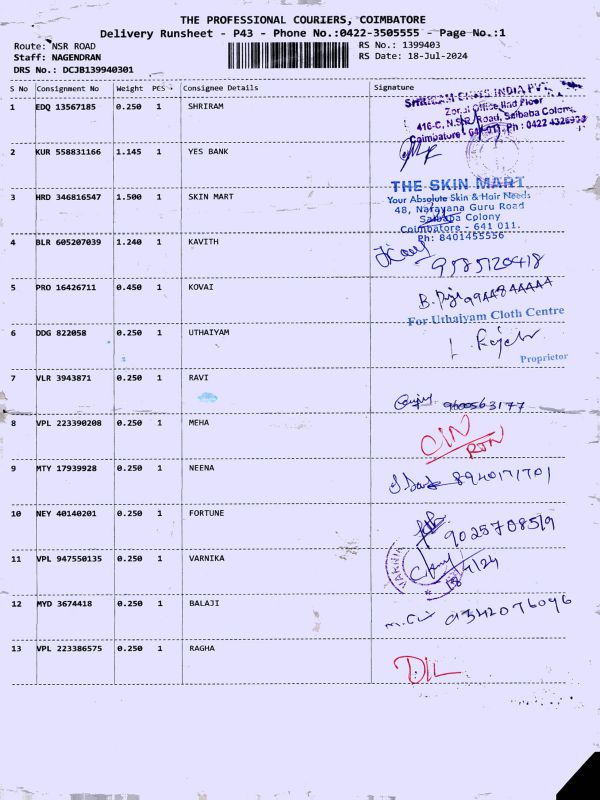 THE PROFESSIONAL COURIERS, COIMBATORE
Delivery Runsheet - P43 - Phone No.:0422-3505555 - Page No.:1
Route: NSR ROAD
RS No.: 1399403
Staff: NAGENDRAN
RS Date: 18-Jul-2024
DRS No.: DCJB139940301
S No Consignment No Weight PCS Consignee Details Signature
1 EDQ 13567185 0.250 1 SHRIRAM
INDIA PVT
Zonal Office IInd Floor
416-C, N.S.R. Road, Saibaba Colony
Coimbatore - 641 011. Ph : 0422 4326933
2 KUR 558831166 1.145 1 YES BANK
3 HRD 346816547 1.500 1 SKIN MART
THE SKIN MART
Your Absolute Skin & Hair Needs
48, Narayana Guru Road
Saibaba Colony
Coimbatore - 641 011.
Ph: 8401455556
4 BLR 605207039 1.240 1 KAVITH
9585120418
5 PRO 16426711 0.450 1 KOVAI
For Uthaiyam Cloth Centre
6 DDG 822058 0.250 1 UTHAIYAM
Proprietor
7 VLR 3943871 0.250 1 RAVI
9600563177
8 VPL 223390208 0.250 1 MEHA
CIN
RTN
9 MTY 17939928 0.250 1 NEENA
8940171701
10 NEY 40140201 0.250 1 FORTUNE
9025708519
11 VPL 947550135 0.250 1 VARNIKA
12 MYD 3674418 0.250 1 BALAJI
9342076096
13 VPL 223386575 0.250 1 RAGHA
D/L